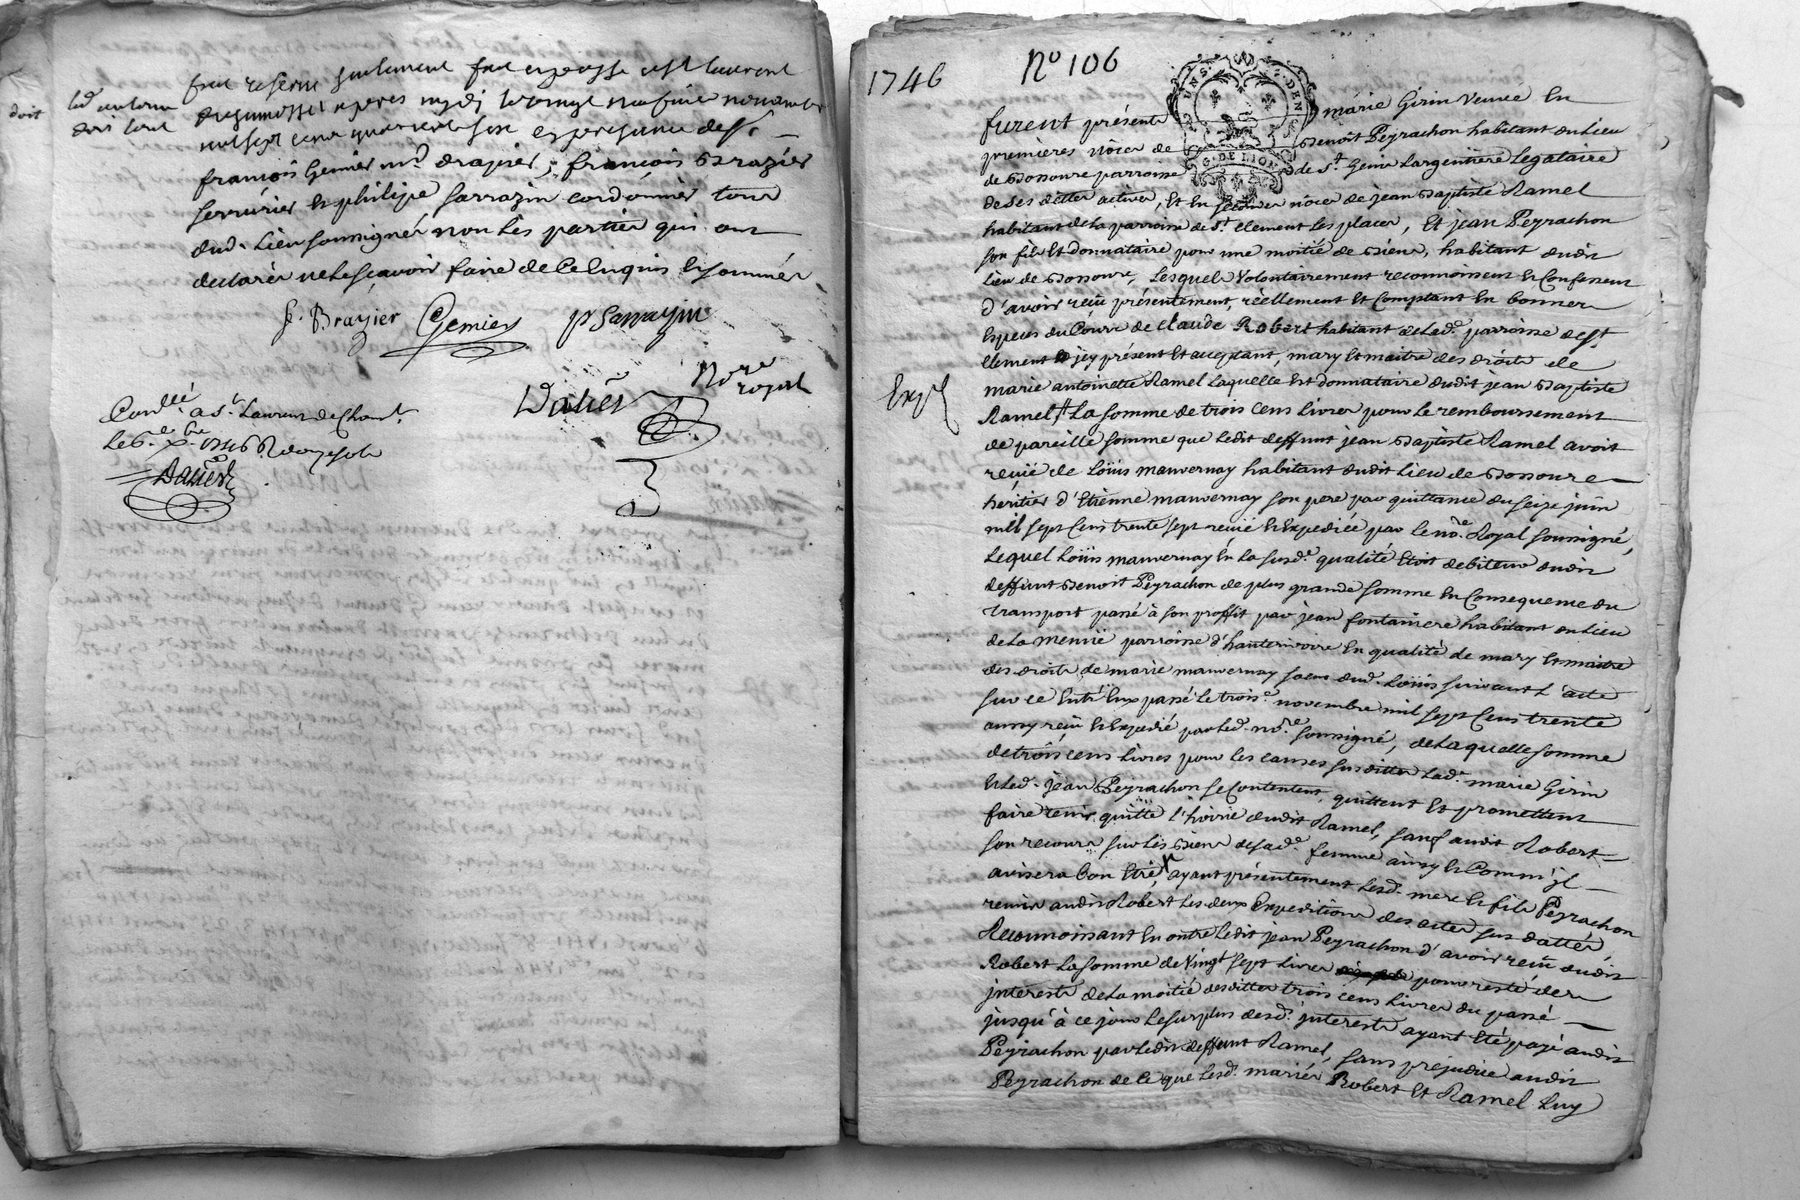 doit
led. antoine
doit tout
fait reserve seulement fait et passé a st laurent
de chamousset apres mydi le vingt neufvie novembre
mil sept cent quarante six en presence de sr.
françois Gemier md. drapier, françois Brazier
serrurier et philipe sarrazin cordonnier tous
dud. lieu soussignés non les parties qui ont
declarés ne le sçavoir faire de ce enquis et sommés
f. Brazier Gemier p Sarrazin
Dalier Nore royal
Conllé a St. Laurent de Cham.
le 6e. xbre. 1746 R douze sols
Dalier
1746
No 106
UNS. DEN
G. DE LION
furent présents marie Girin veuve en
premieres nôces de Benoît Peyrachon habitant du lieu
de Bossoure parroisse de St. Genis Largentiere legataire
de ses dettes actives, et en secondes nôces de jean Baptiste Ramel
habitant de la parroisse de St. Clement les places, Et jean Peyrachon
son fils et donnataire pour une moitié de Biens, habitant dudit
lieu de Bossoure, Lesquels volontairement reconnoissent et Confessent
d'avoir reçu présentement, réellement et Comptant en bonnes
Especes du Cours de claude Robert habitant de lad.e parroisse de St.
Clement jcy présent et acceptant, mary et maitre des droits de
marie antoinette Ramel Laquelle est donnataire dudit jean Baptiste
Expé
Ramel La somme de trois cens Livres pour le remboursement
de pareille somme que ledit deffunt jean Baptiste Ramel avoit
reçüe de Loüis mauvernay habitant dudit Lieu de Bossoure
heritier d'Etienne mauvernay son pere par quittance du seize juin
mil sept Cens trente sept reçüe et Expediée par le no.re Royal soussigné,
Lequel Loüis mauvernay en la susd.e qualité Etoit debiteur dudit
deffunt Benoit Peyrachon de plus grande somme en Consequence du
transport passé à son proffit par jean fontainere habitant du lieu
de la menüe parroisse d'hauterivoire en qualité de mary et maitre
des droits de marie mauvernay soeur dud. Loüis suivant l'acte
sur ce Entr'Eux passé le trois.e novembre mil sept Cens trente
aussy reçu et Expedié par led. no.re soussigné, de Laquelle somme
de trois cens Livres pour les causes susdittes lad.e marie Girin
et led. jean Peyrachon se Contentent, quittent et promettent
faire tenir quitte l'hoirie dudit Ramel, sauf audit Robert
son recours sur les Biens de sad.e femme ainsy et Comm'jl
avisera bon Etre, ayant présentement lesd. mere et fils Peyrachon
remis audit Robert les deux Expeditions des actes sus dattés,
Reconnoissant en outre ledit jean Peyrachon d'avoir reçu dudit
Robert la somme de vingt sept livres pour reste des
jnterests de la moitié desdittes trois cens livres du passé
jusqu'à ce jour le surplus desd. jnterests ayant Eté payé audit
Peyrachon par ledit deffunt Ramel, sans prejudice audit
Peyrachon de ce que lesd. mariés Robert et Ramel luy